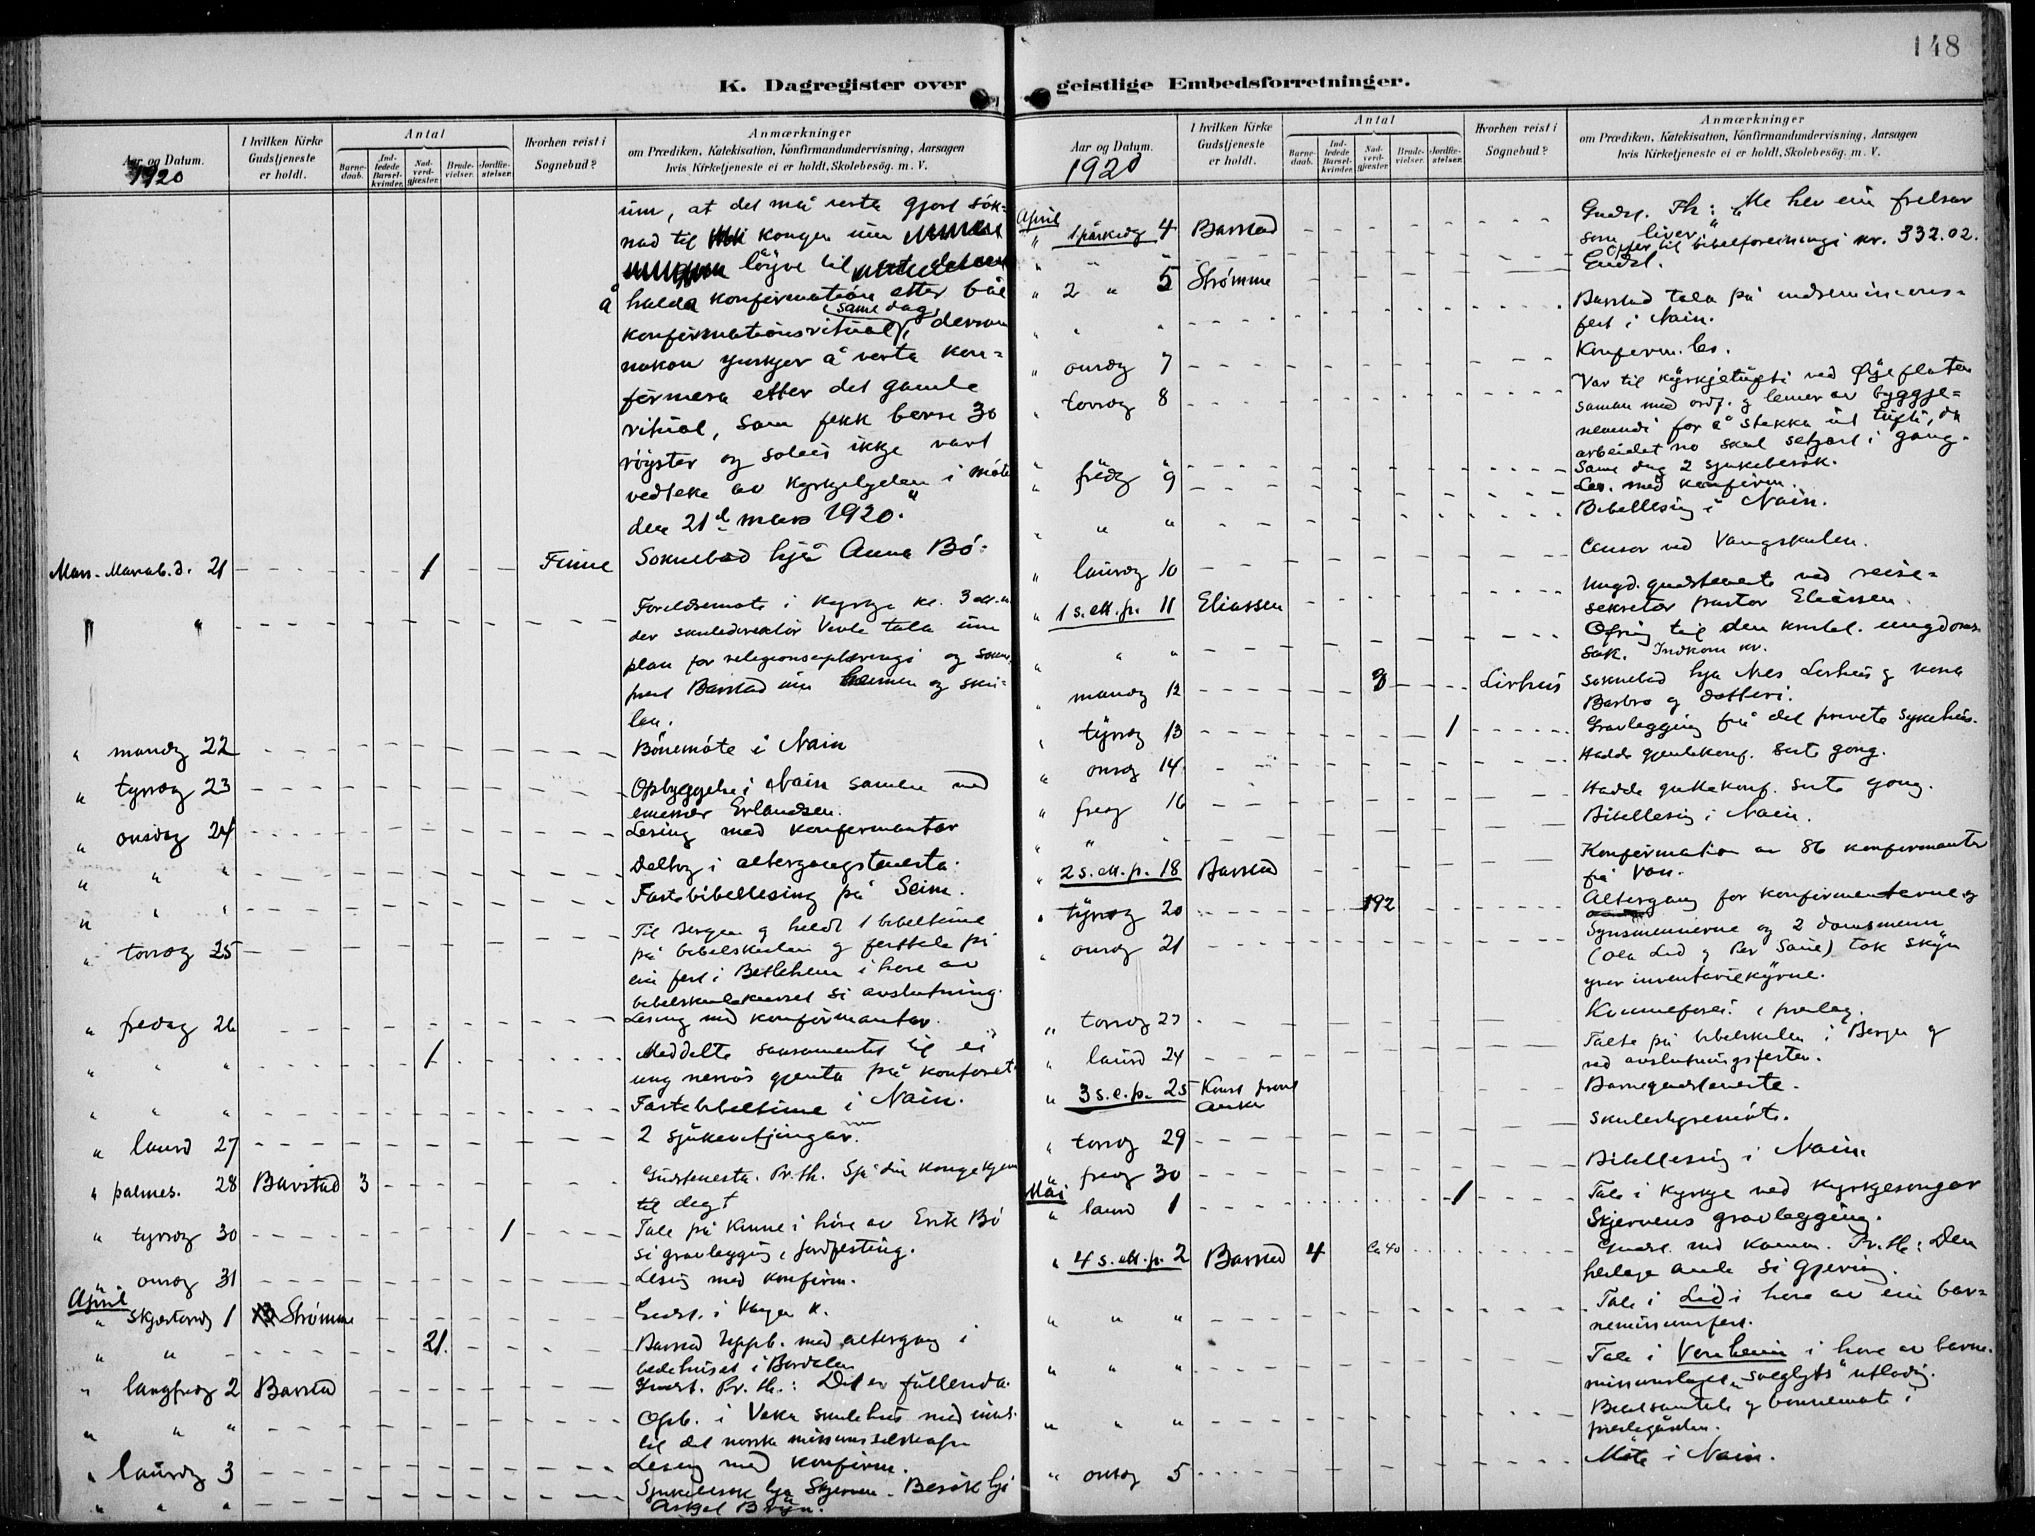 148
K. Dagregister over
geistlige Embedsforretninger.
Aar og Datum.
1920
I hvilken Kirke Gudstjeneste er holdt.
Antal
Barnedaab.
Indledede Barselkvinder.
Nadverdgjester.
Brudevielser.
Jordfæstelser.
Hvorhen reist i Sognebud?
Anmærkninger
om Prædiken, Katekisation, Konfirmandundervisning, Aarsagen
hvis Kirketjeneste ei er holdt, Skolebesög. m. V.
um, at det må verta gjort søk-
nad til kongen um
løyve til
å halda konfirmation etter båe
konfirmationsritual, same dag, dersom
nokon ynskjer å verta kon-
firmera etter det gamle
ritual, som fekk berre 30
røyster og soleis ikkje vart
vedteke av kyrkjelyden i møte
den 21 mars 1920."
Mars. Mariab.d. 21 1 Finne Soknebod hjå Anna Bø.
" " Foreldremøte i kyrkja kl. 3 em.
der skuledirektør Vevle tala um
plan for religionsuplæringi og sokne-
prest Barstad um heimen og sku-
len.
" mandg 22 Bönemöte i Nain
" tyrsdg 23 Opbyggelse i Nain saman med
emissær Erlandsen.
" onsdag 24 Lesing med konfirmantar
" " " Deltog i altergangstenesta.
" " " Fastebibellesing på Seim.
" torsdg 25 Til Bergen og heldt 1 bibeltime
på bibelskulen og festtala på
ein fest i Betlehem i høve av
bibelskulekurset si avslutning.
" fredag 26 Lesing med konfirmantar.
" " " 1 Meddelte sakramentet til ei
ung nervøs gjenta på kontoret
" " " Fastebibeltime i Nain.
" laurd 27 2 sjukevitjingar.
" palmes. 28 Barstad 3 Gudstenesta. Pr. th. Sjå din konge kjem
til deg!
" tyrsdg 30 1 Tale på Kinne i høve av Erik Bø
si gravlegging, jordfesting.
" onsdg 31 Lesing med konfirm.
April
" skjærtorsdg 1 Strømme Gudst. i Vangen k.
" " 21. Barstad Uppb. med altergang i
bedehuset i Bordalen
" langfredg 2 Barstad Gudst. Pr. th.: Det er fullenda.
" " " Opb. i Veka skulehus med
til det norske misjonsselskap
" laurdg 3 Lesing med konfirm.
" " " Sjukebesøk hja Skjerven. Besøk hjå
Aar og Datum.
1920
I hvilken Kirke Gudstjeneste er holdt.
Antal
Barnedaab.
Indledede Barselkvinder.
Nadverdgjester.
Brudevielser.
Jordfæstelser.
Hvorhen reist i Sognebud?
Anmærkninger
om Prædiken, Katekisation, Konfirmandundervisning, Aarsagen
hvis Kirketjeneste ei er holdt, Skolebesög. m. V.
April
" 1 påskedg 4 Barstad Gudst. Th: "Me hev ein frelsar
som liver"
Offer til bibelforeiningi kr. 332.02.
" 2 " 5 Strømme Gudst.
" " " Barstad tala på indremisions-
fest i Nain.
" onsdg 7 Konfirm. les.
" torsdg 8 Var til kyrkjetufti ved Øyeflaten
saman med ordf. og lemer av byggje-
nemndi for å stekka ut tufti, då
arbeidet no skal setjast i gang.
Same dag 2 sjukebesøk.
" fredg 9 Les. med konfirm.
" " " Bibellesing i Nain.
" laurdg 10 Censor ved Vangskulen.
" 1 s. ett. p. 11 Eliassen Ungd. gudsteneste ved reise-
sekretær pastor Eliassen.
" " " Ofring til den kristel. ungdoms-
sak. Indkom kr.
" mandg 12 3 Lirhus Soknebod hja Nils Lirhus og kona
Barbro og dotteri.
" tyrsdg 13 1 Gravlegging frå det private sjukehus.
" onsdg 14 Hadde gjentekonf. siste gong.
" fredg 16 Hadde guttekonf. siste gong.
" " " Bibellesing i Nain.
" 2 s. ett. p. 18 Barstad Konfirmation av 86 konfirmanter
frå Voss.
" tyrsdg 20 192 Altergang for konfirmanterne og
" onsdg 21 Synsmennerne og 2 domsmenn
(Ola Lid og Per Saue) tok skyn
yver inventariekyrne.
" torsdg 22 Kvinneforei. i presteg.
" laurd 24 Talte på bibelskulen i Bergen og
ved avslutningsfesten.
" 3 s. e. p. 25 Knut prost Anker Barnegudsteneste.
" torsdg 29 Skulestyremøte.
" fredg 30 Bibellesing i Nain.
Mai
" laurd 1 1 Tale i kyrkja ved kyrkjesongar
Skjervens gravlegging.
" 4 s. ett. p. 2 Barstad 4 Ca 40 Gudst. med komm. Pr. th: Den
heilage ande si gjerning.
" " " Tale i Lid i høve av ein bar-
nemisjonsfest.
" " " Tale i Voreheim i høve av barne-
misjonslaget "Solglytt" utlodng.
" " " Bibelsamtale og bønnemøte i
prestegården.
" onsdg 5 Møte i Nain.